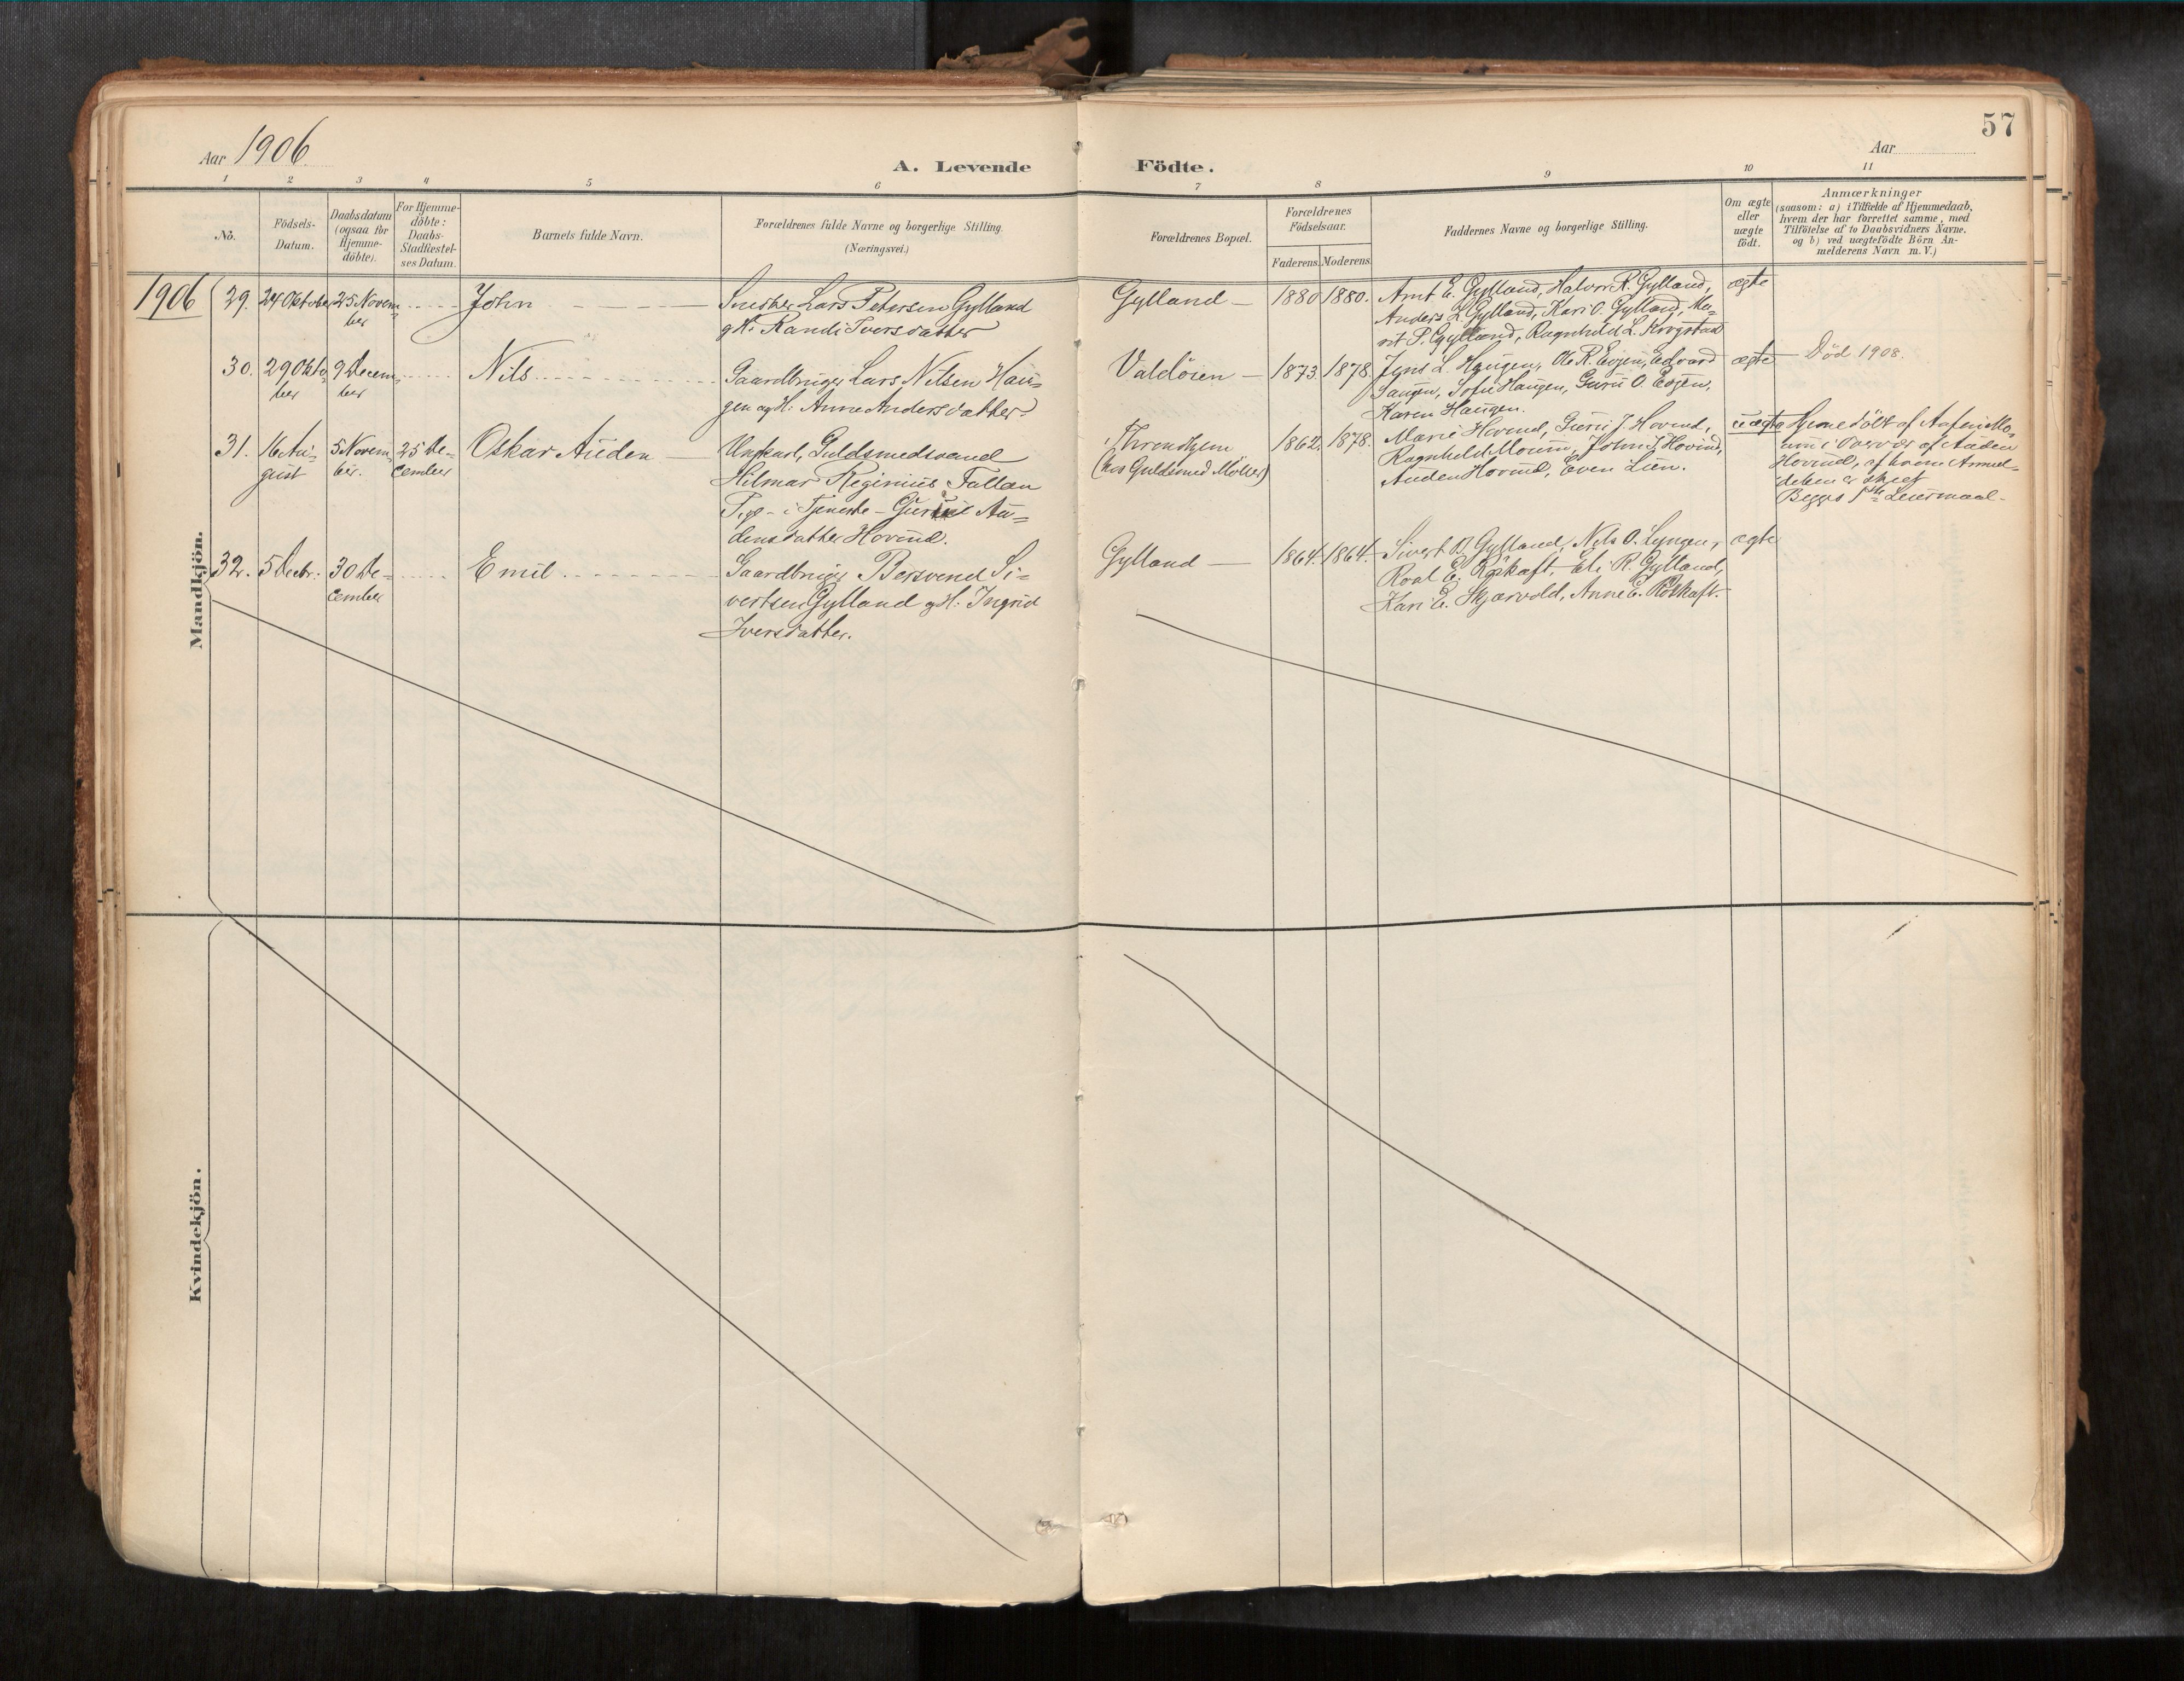 57
Aar 1906
Aar
A. Levende Födte.
1 2 3 4 5 6 7 8 9 10 11
Nô.
Födsels-
Datum.
Daabsdatum
(ogsaa for
Hjemme-
döbte).
For Hjemme-
döbte:
Daabs-
Stadfæstel-
ses Datum.
Barnets fulde Navn.
Forældrenes fulde Navne og borgerlige Stilling.
(Næringsvei.)
Forældrenes Bopæl.
Forældrenes
Födselsaar.
Faderens. Moderens.
Faddernes Navne og borgerlige Stilling.
Om ægte
eller
uægte
födt.
Anmærkninger
(saasom: a) i Tilfælde af Hjemmedaab,
hvem der har forrettet samme, med
Tilföielse af to Daabsvidners Navne.
og b) ved uægtefödte Börn An-
melderens Navn m.V.)
Mandkjön.
1906
29. 24 Oktober
25 Novem-
ber
John
Snedker Lars Petersen Gylland
og H: Randi Iversdatter
Gylland
1880 1880.
Arnt E. Gylland, Halvor R. Gylland,
Anders L. Gylland, Kari O. Gylland, Me-
rit P. Gylland, Ragnhild L. Krogstad
ægte
30. 29 Okto-
ber
9 Decem-
ber
Nils
Gaardbruger Lars Nilsen Hau-
gen og H: Anne Andersdatter.
Valdöien
1873. 1878.
Jens L. Haugen, Ole R. Evjen, Edvard
Haugen, Sofie Haugen, Guru O. Evjen,
Karen Haugen.
ægte
Död 1908.
31. 16 Au-
gust
5 Novem-
ber.
25 De-
cember
Oskar Auden
Ungkarl, Guldsmedsvend
Hilmar Reginius Fallan
Pige - i Tjeneste - Guru Au-
densdatter Hovind.
Throndhjem
(hos Guldsmed Möller)
1862. 1878.
Marie Hovind, Guru J. Hovind,
Ragnhild Moum, John J. Hovind,
Auden Hovind, Even Lien.
uægte
Hjemedöbt af Mo-
um i Overvær af Auden
Hovind, af hvem Anmel-
delsen er skeet
Begges 1ste Leiermaal.
32. 5 Decbr.
30 De-
cember
Emil
Gaardbruger Bersvend Si-
vertsen Gylland og H: Ingrid
Iversdatter.
Gylland
1864. 1864.
Sivert B. Gylland, Nils O. Lyngen,
Roal E. Röskaft, Eli R. Gylland,
Kari E. Skjærvold, Anne E. Röskaft.
ægte
Kvindekjön.